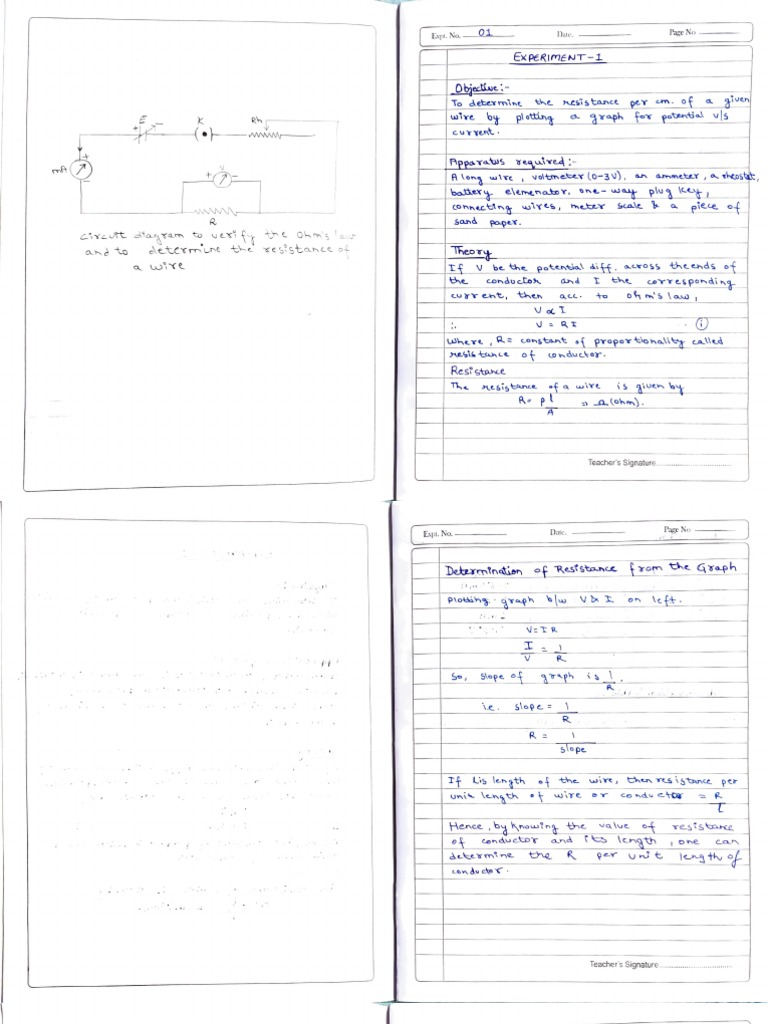 E
K
Rh
+
-
mA
+
-
+
V
-
R
Circuit diagram to verify the Ohm's law
and to determine the resistance of
a wire
Expt. No. 01 Date. Page No
EXPERIMENT-1
Objective:-
To determine the resistance per cm. of a given
wire by plotting a graph for potential v/s
current.
Apparatus required:-
A long wire, voltmeter (0-3V), an ammeter, a rheostat,
battery elemenator, one-way plug key,
connecting wires, meter scale & a piece of
sand paper.
Theory
If V be the potential diff. across the ends of
the conductor and I the corresponding
current, then acc. to ohm's law,
V ∝ I
∴ V = RI (i)
Where, R = constant of proportionality called
resistance of conductor.
Resistance
The resistance of a wire is given by
R = ρ l/A => Ω (ohm).
Teacher's Signature
Expt. No. Date. Page No
Determination of Resistance from the Graph
plotting graph b/w V & I on left.
V = IR
I/V = 1/R
So, slope of graph is 1/R.
i.e. slope = 1/R
R = 1/slope
If L is length of the wire, then resistance per
unit length of wire or conductor = R/L
Hence, by knowing the value of resistance
of conductor and its length, one can
determine the R per unit length of
conductor.
Teacher's Signature